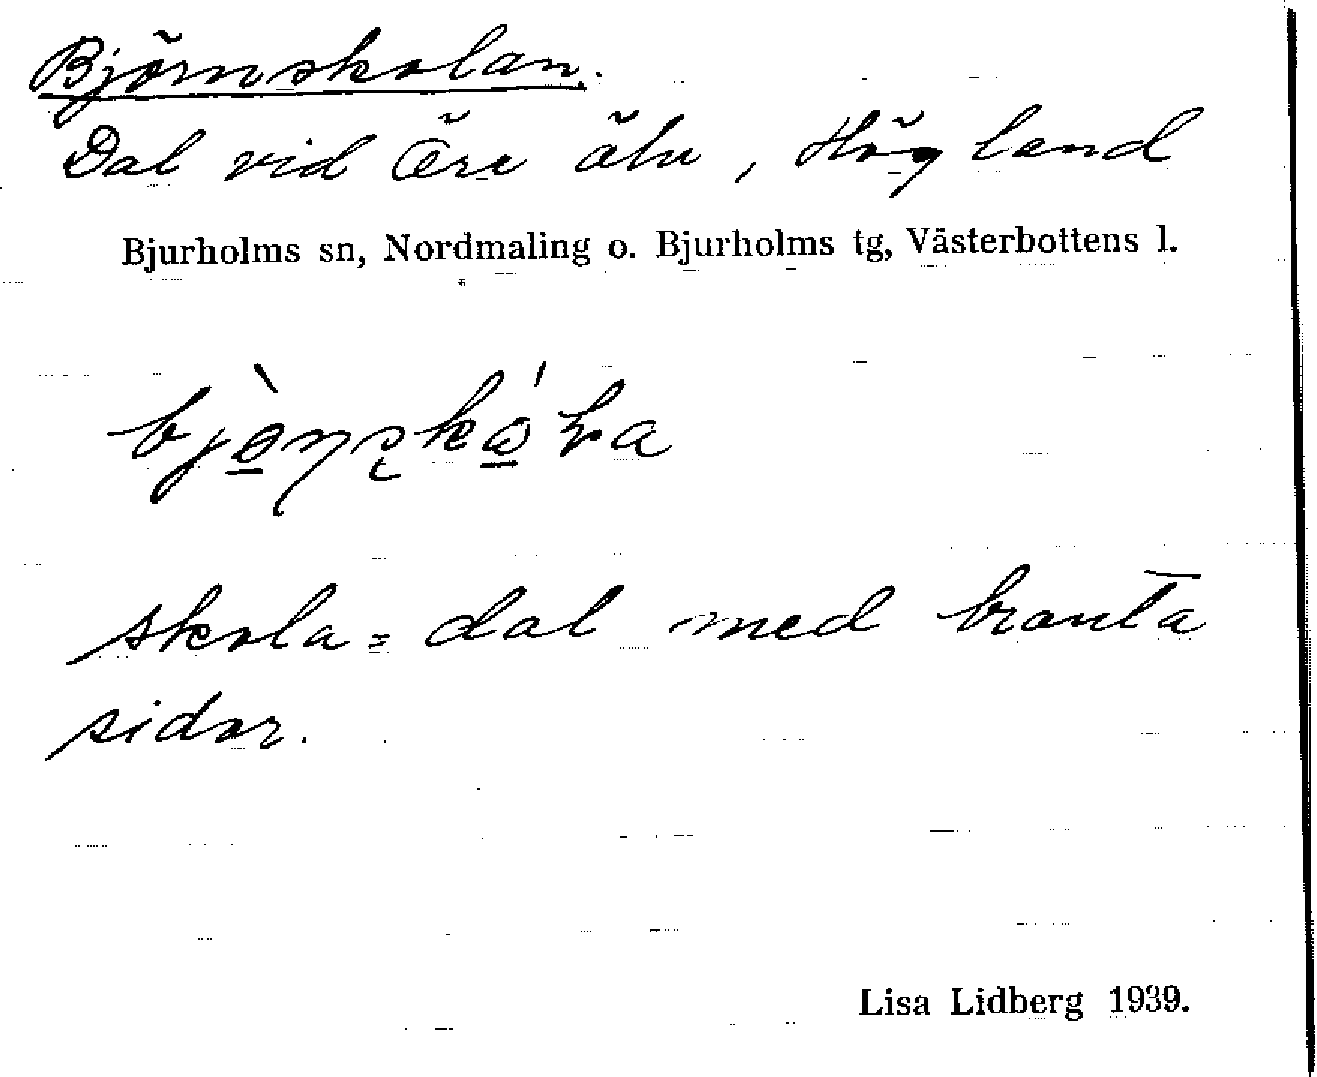 Björnskolan.
Dal vid Öre älv, Högland
Bjurholms sn, Nordmaling o. Bjurholms tg, Västerbottens l.
skola = dal med branta
sidor.
Lisa Lidberg 1939.